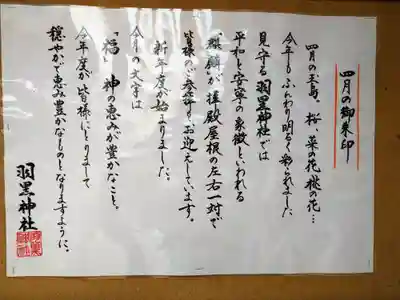 四月の御朱印
四月の玉島。桜、菜の花、桃の花…
今年もふんわり明るく彩られました
見守る羽黒神社では
平和と安寧の象徴といわれる
“麒麟”が拝殿屋根の左右一対で
皆様のご参拝をお迎えしています。
新年度が始まりました。
今月の文字は
「福」神の恵みが豊かなこと。
今年度が皆様にとりまして
穏やかで恵み豊かなものとなりますように。
羽黒神社